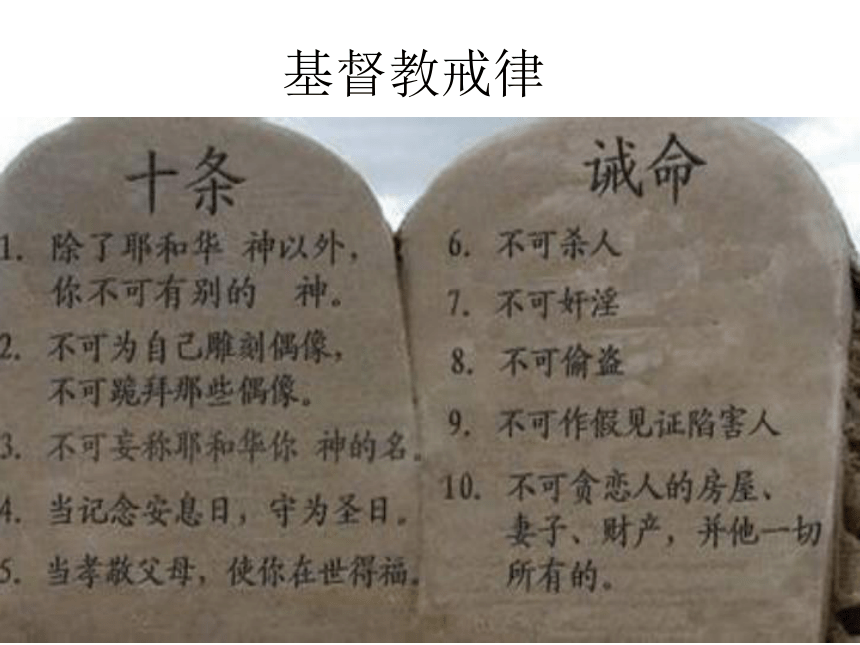 基督教戒律
十条
1. 除了耶和华 神以外，
你不可有别的 神。
2. 不可为自己雕刻偶像，
不可跪拜那些偶像。
3. 不可妄称耶和华你 神的名。
4. 当记念安息日，守为圣日。
5. 当孝敬父母，使你在世得福。
诫命
6. 不可杀人
7. 不可奸淫
8. 不可偷盗
9. 不可作假见证陷害人
10. 不可贪恋人的房屋、
妻子、财产，并他一切
所有的。